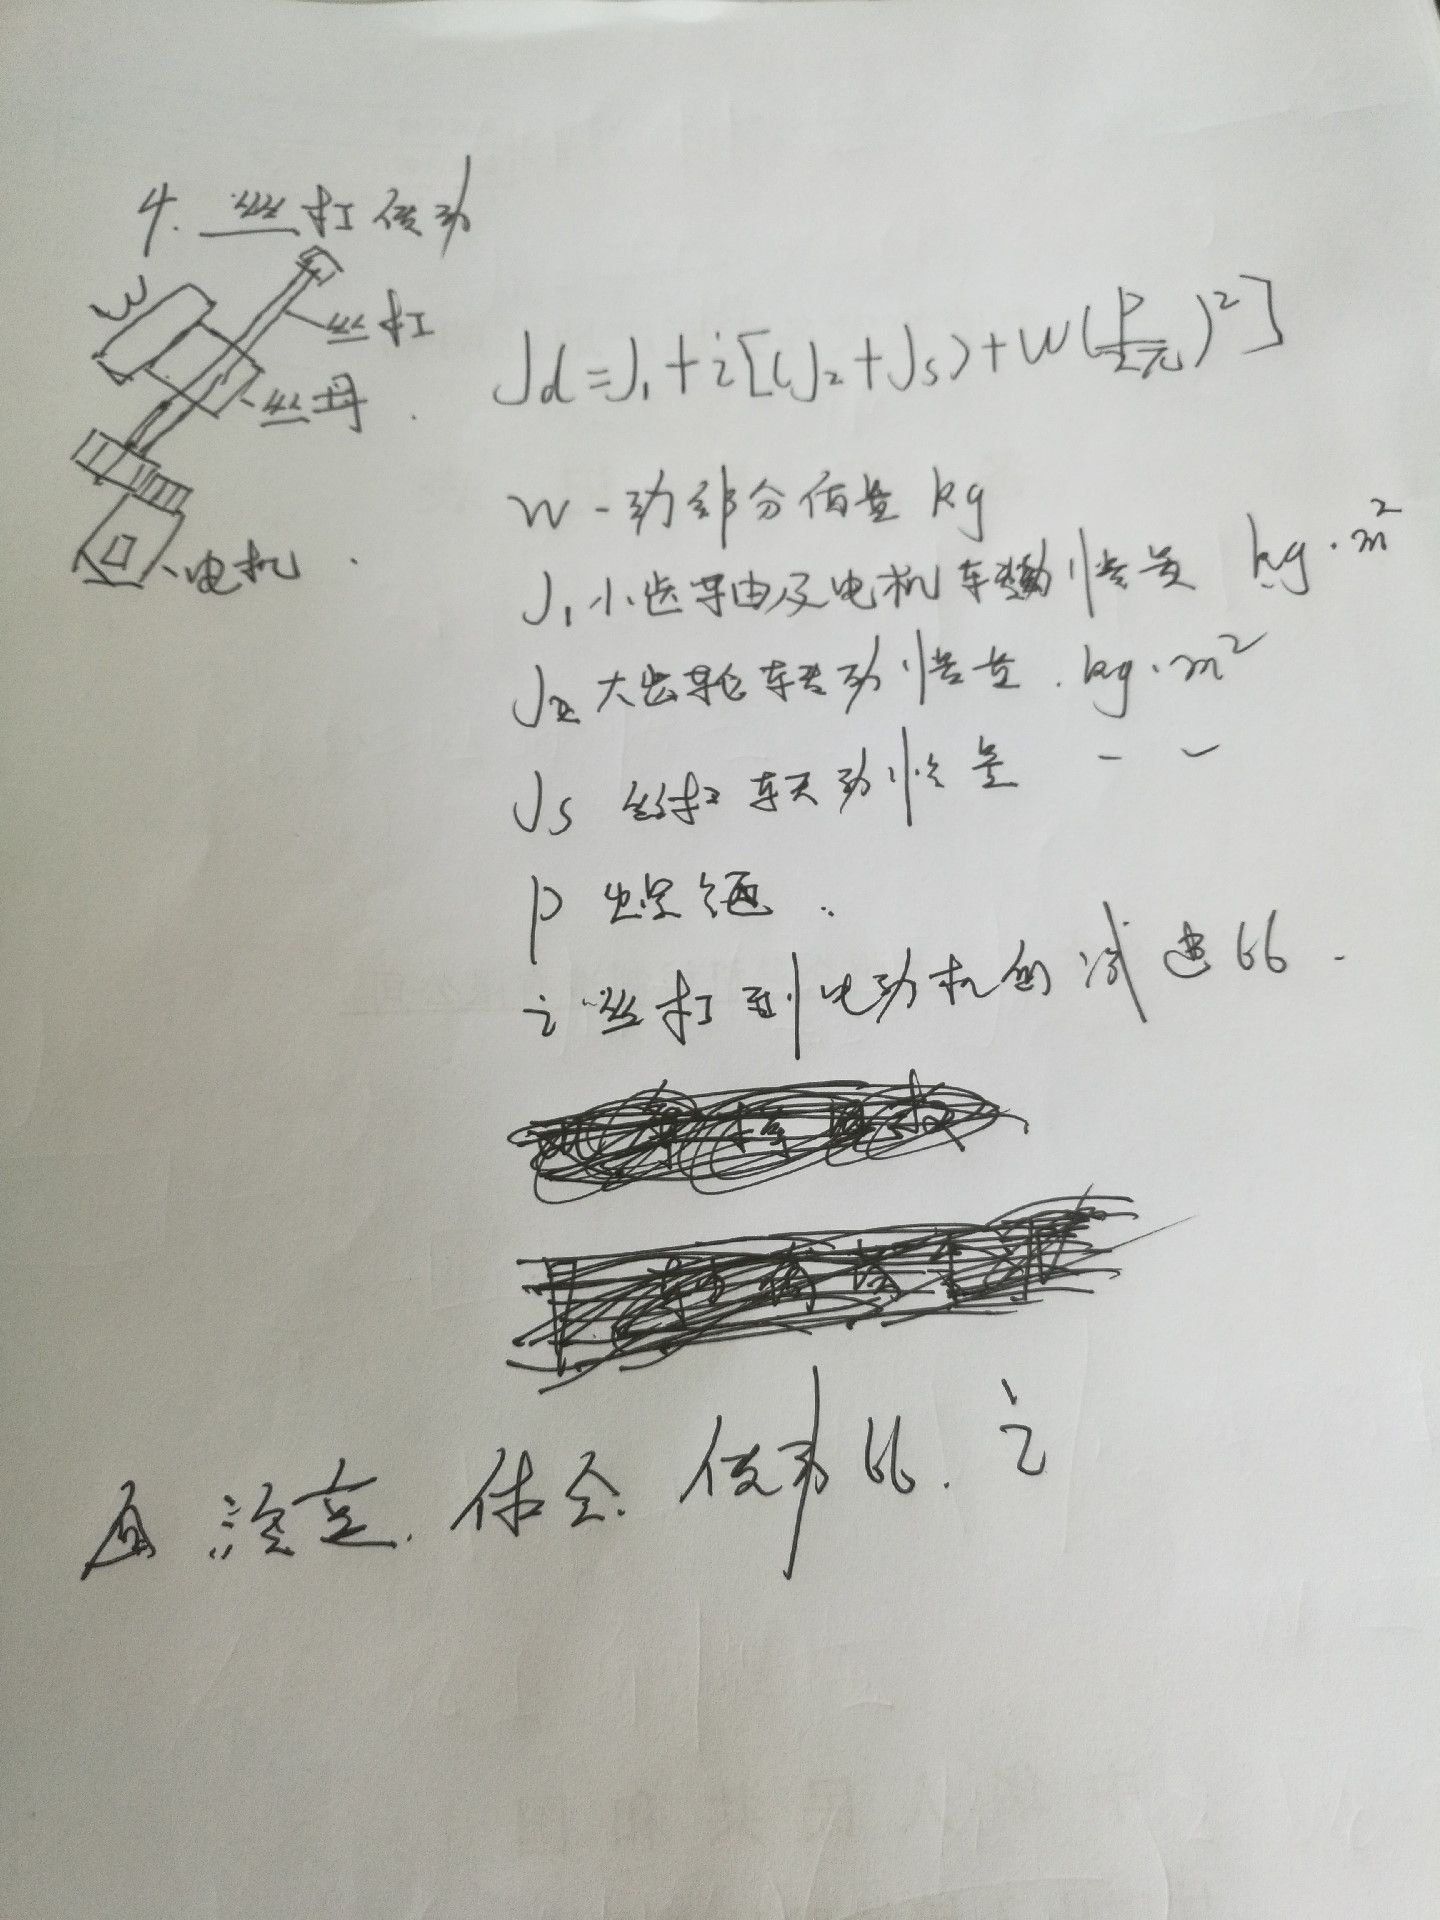 4. 丝杠传动
W
丝杠
丝母
电机
Jd=J₁+i[(J₂+Js)+W(P/2π)²]
W-动部分质量 kg
J₁小齿轮及电机转动惯量 kg·m²
J₂大齿轮转动惯量. kg·m²
Js 丝杠转动惯量 - -
P 螺距..
i 丝杠到电动机的减速比.
传动比. i